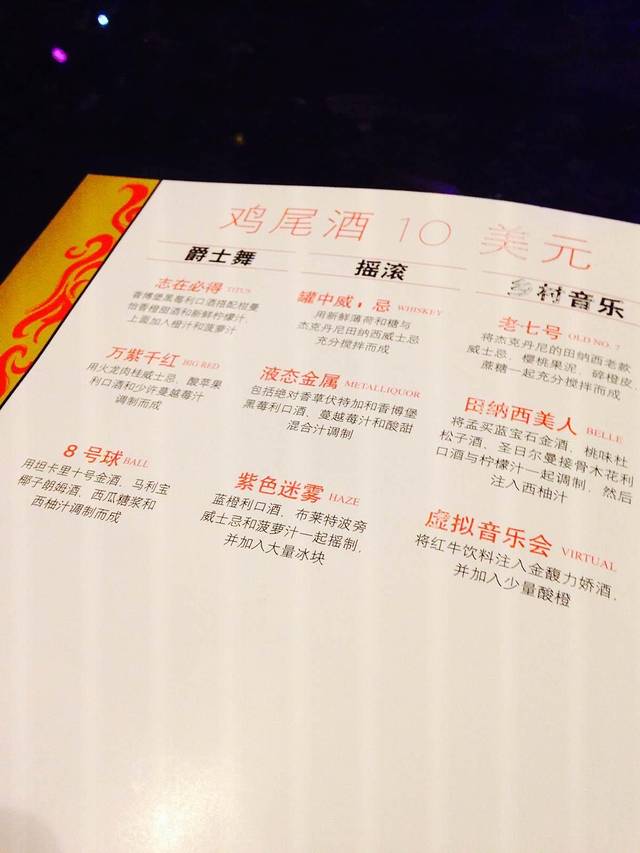 鸡尾酒 10 美元
爵士舞
志在必得 TITUS
香博堡黑莓利口酒搭配柑曼
怡香橙甜酒和新鲜柠檬汁，
上面加入橙汁和菠萝汁
万紫千红 BIG RED
用火龙肉桂威士忌、酸苹果
利口酒和少许蔓越莓汁
调制而成
8 号球 BALL
用坦卡里十号金酒、马利宝
椰子朗姆酒、西瓜糖浆和
西柚汁调制而成
摇滚
罐中威，忌 WHISKEY
用新鲜薄荷和糖与
杰克丹尼田纳西威士忌
充分搅拌而成
液态金属 METALLIQUOR
包括绝对香草伏特加和香博堡
黑莓利口酒、蔓越莓汁和酸甜
混合汁调制
紫色迷雾 HAZE
蓝橙利口酒、布莱特波旁
威士忌和菠萝汁一起摇制，
并加入大量冰块
乡村音乐
老七号 OLD NO. 7
将杰克丹尼的田纳西老款
威士忌、樱桃果泥、碎橙皮
蔗糖一起充分搅拌而成
田纳西美人 BELLE
将孟买蓝宝石金酒、桃味杜
松子酒、圣日尔曼接骨木花利
口酒与柠檬汁一起调制，然后
注入西柚汁
虚拟音乐会 VIRTUAL
将红牛饮料注入金馥力娇酒，
并加入少量酸橙